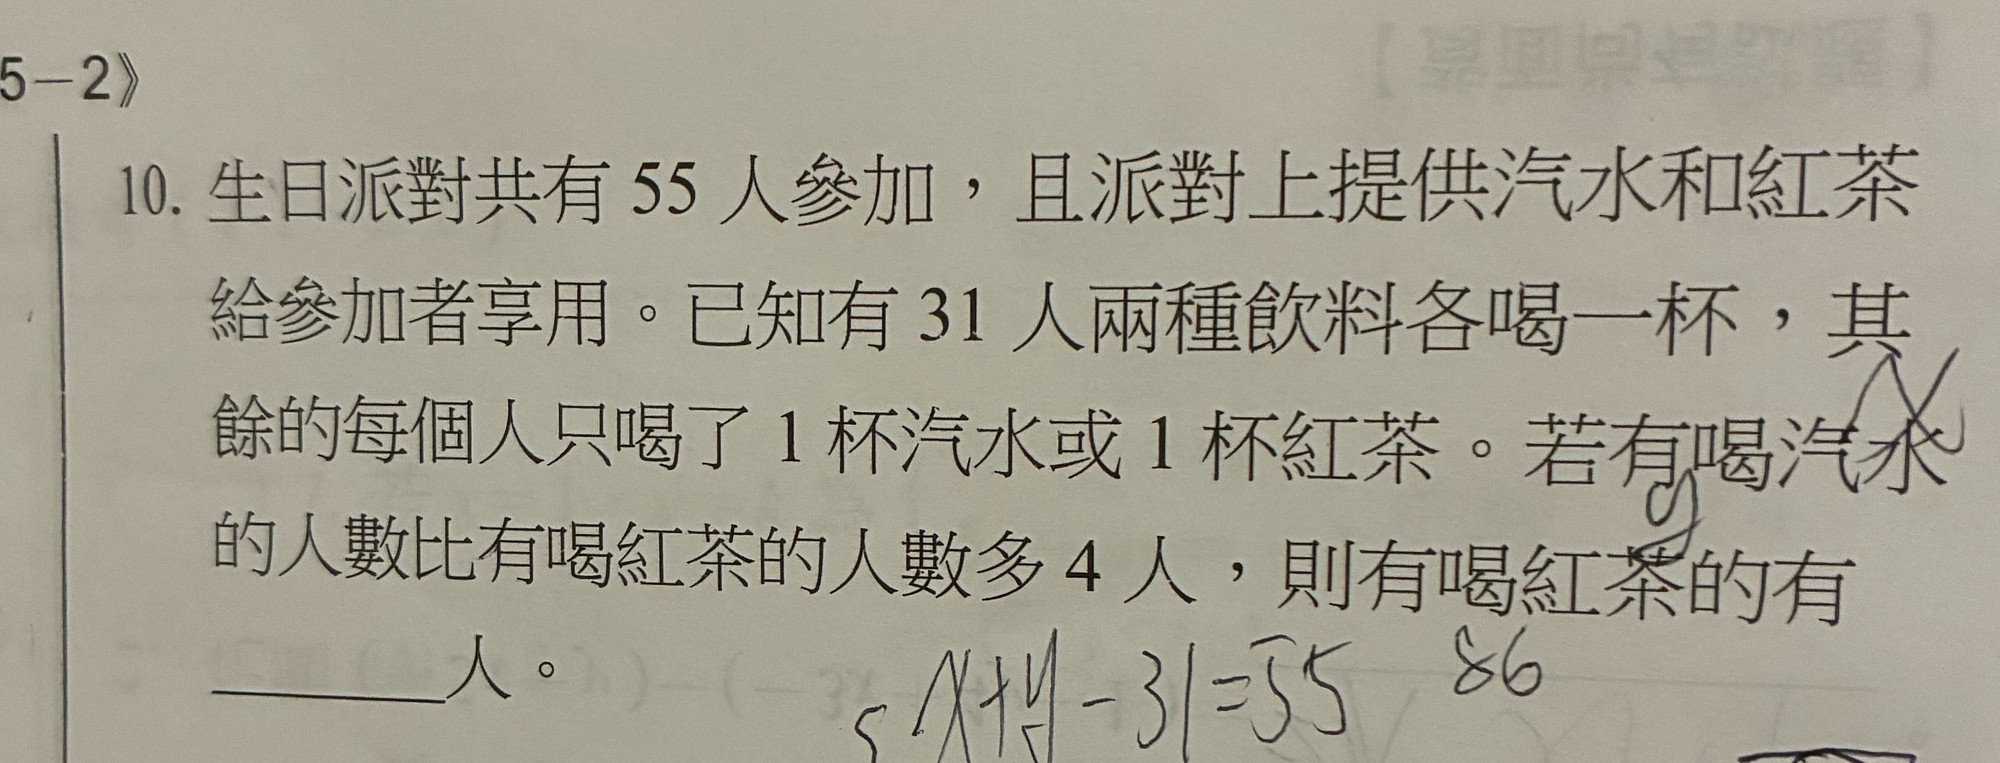 【背面尚有試題】
5-2》
10. 生日派對共有 55 人參加，且派對上提供汽水和紅茶
給參加者享用。已知有 31 人兩種飲料各喝一杯，其
餘的每個人只喝了 1 杯汽水或 1 杯紅茶。若有喝汽水
x
的人數比有喝紅茶的人數多 4 人，則有喝紅茶的有
y
______人。
x+y-31=55 86